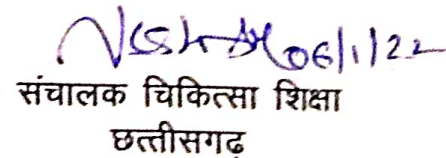 06/1/22
संचालक चिकित्सा शिक्षा
छत्तीसगढ़